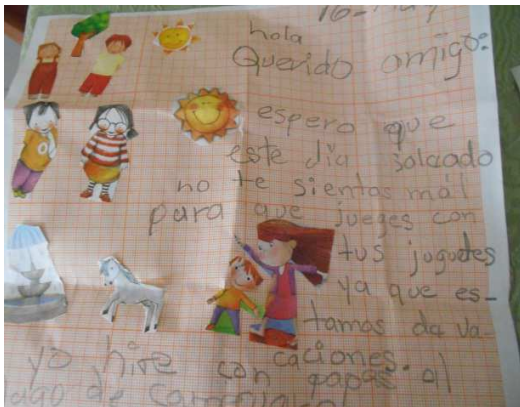 16-May
hola
Querido amigo:
espero que
este dia soleado
no te sientas mal
para que jueges con
tus juguetes
ya que es-
tamos da va-
caciones.
yo hire con papas al
lago de